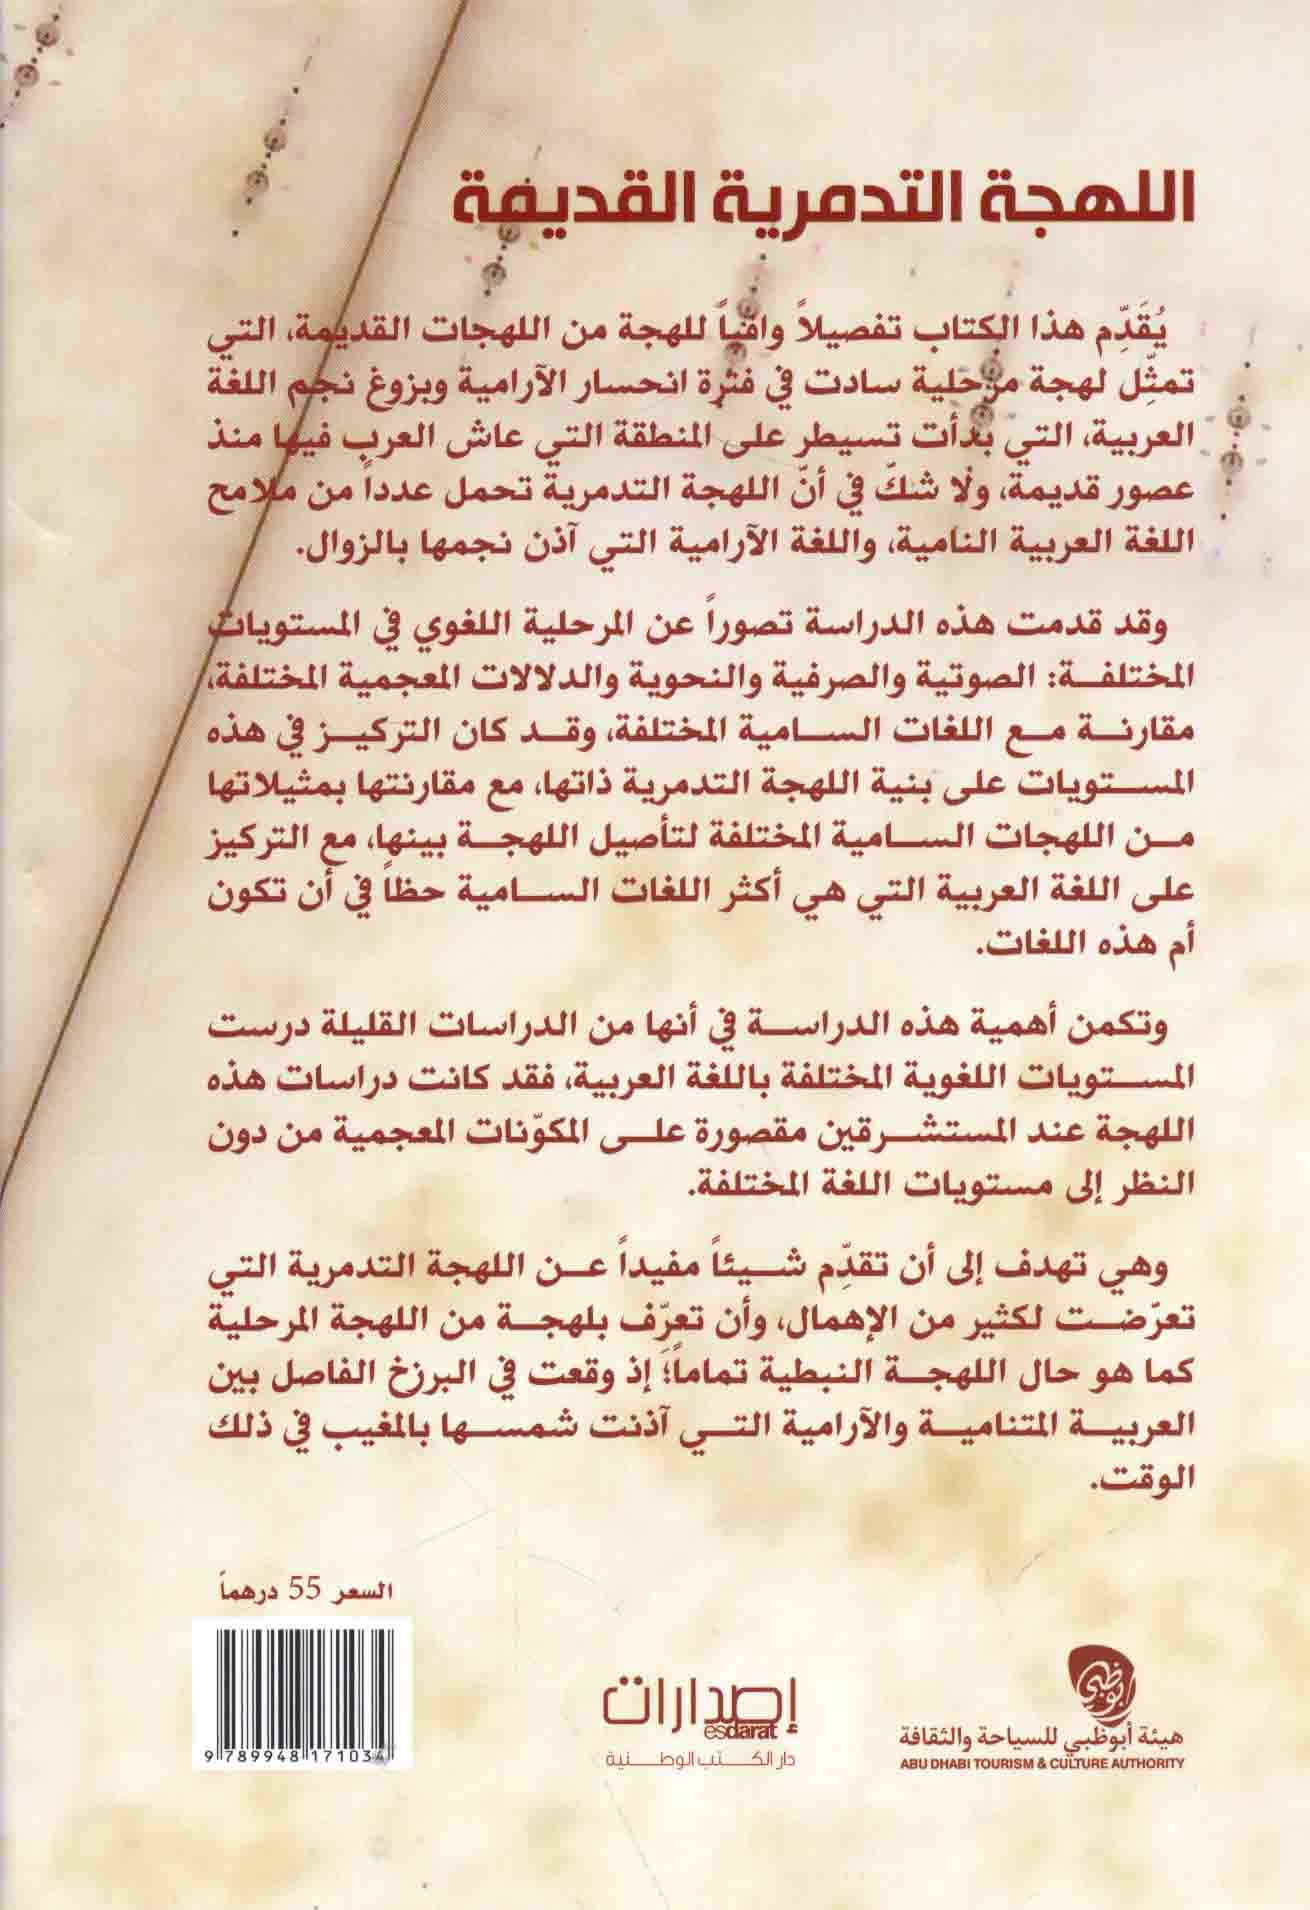 اللهجة التدمرية القديمة
يُقَدِّم هذا الكتاب تفصيلاً وافياً للهجة من اللهجات القديمة، التي
تمثِّل لهجة مرحلية سادت في فترة انحسار الآرامية وبزوغ نجم اللغة
العربية، التي بدأت تسيطر على المنطقة التي عاش العرب فيها منذ
عصور قديمة، ولا شكّ في أنّ اللهجة التدمرية تحمل عدداً من ملامح
اللغة العربية النامية، واللغة الآرامية التي آذن نجمها بالزوال.
وقد قدمت هذه الدراسة تصوراً عن المرحلية اللغوي في المستويات
المختلفة: الصوتية والصرفية والنحوية والدلالات المعجمية المختلفة،
مقارنة مع اللغات السامية المختلفة، وقد كان التركيز في هذه
المستويات على بنية اللهجة التدمرية ذاتها، مع مقارنتها بمثيلاتها
من اللهجات السامية المختلفة لتأصيل اللهجة بينها، مع التركيز
على اللغة العربية التي هي أكثر اللغات السامية حظاً في أن تكون
أم هذه اللغات.
وتكمن أهمية هذه الدراسة في أنها من الدراسات القليلة درست
المستويات اللغوية المختلفة باللغة العربية، فقد كانت دراسات هذه
اللهجة عند المستشرقين مقصورة على المكوّنات المعجمية من دون
النظر إلى مستويات اللغة المختلفة.
وهي تهدف إلى أن تقدِّم شيئاً مفيداً عن اللهجة التدمرية التي
تعرّضت لكثير من الإهمال، وأن تعرِّف بلهجة من اللهجة المرحلية
كما هو حال اللهجة النبطية تماماً؛ إذ وقعت في البرزخ الفاصل بين
العربية المتنامية والآرامية التي آذنت شمسها بالمغيب في ذلك
الوقت.
السعر 55 درهماً
9 789948 171034
إصدارات
esdarat
دار الكتب الوطنية
أبوظبي
هيئة أبوظبي للسياحة والثقافة
ABU DHABI TOURISM & CULTURE AUTHORITY